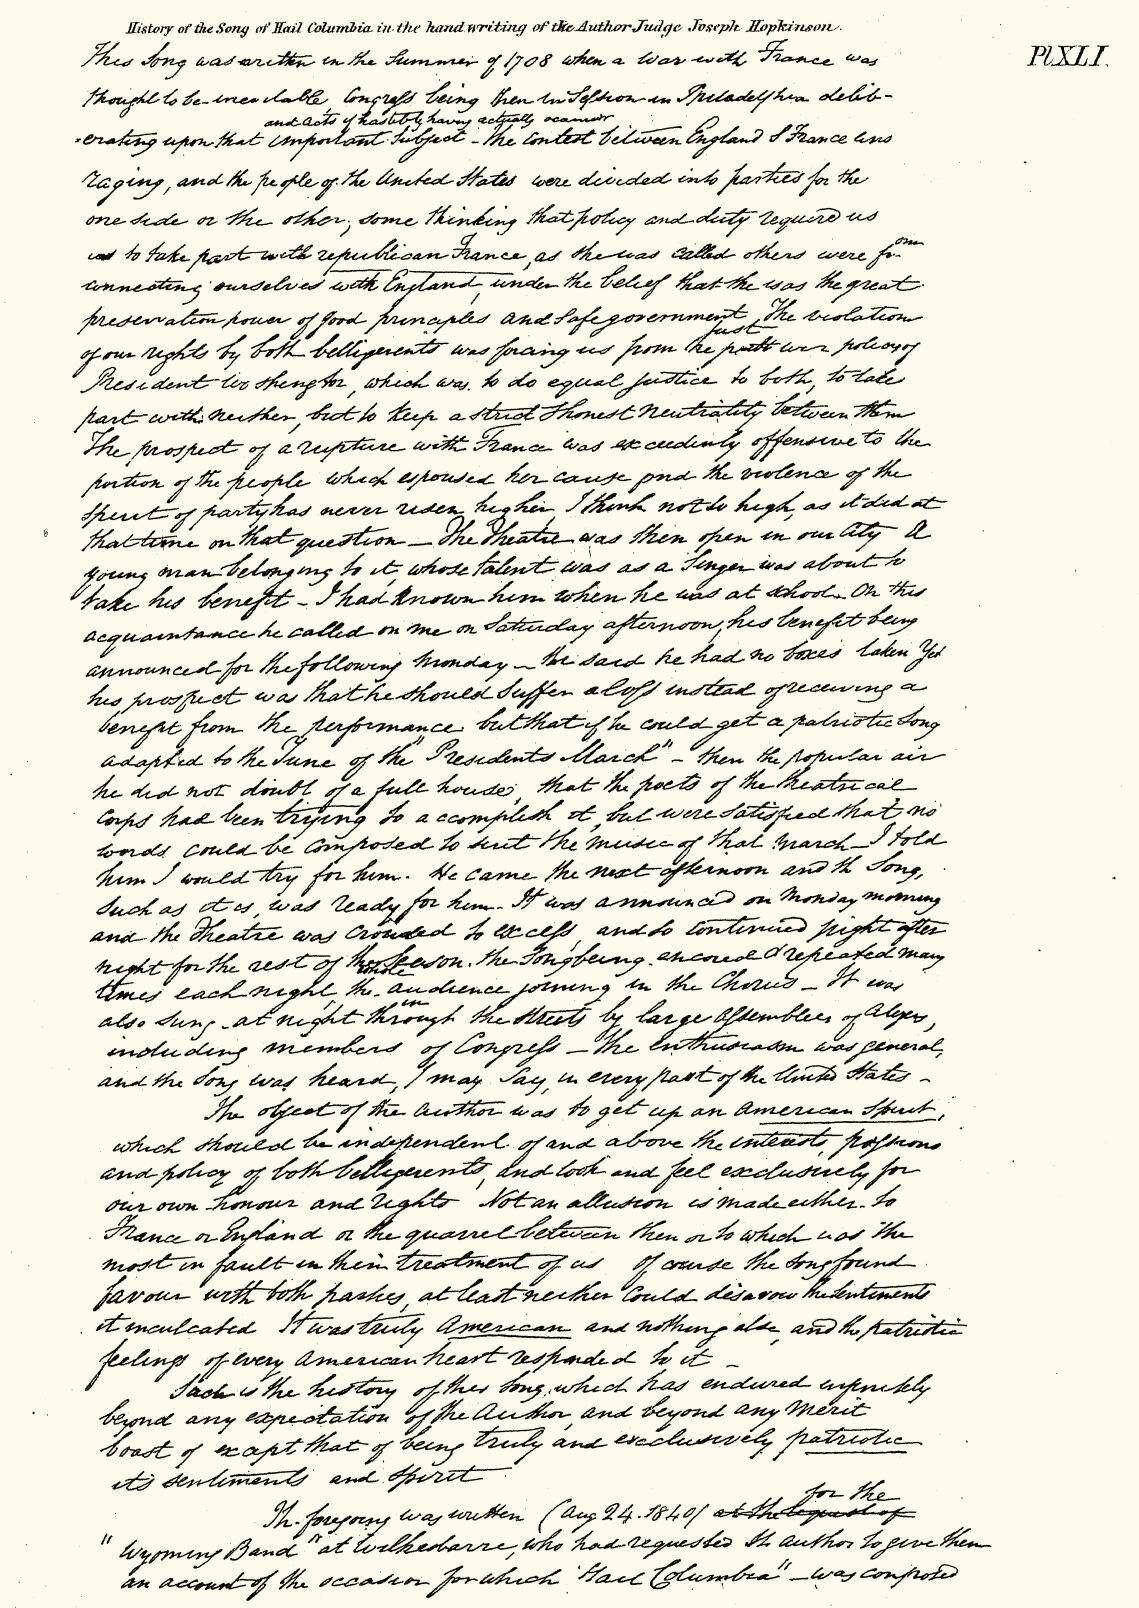 History of the Song of Hail Columbia in the hand writing of the Author Judge Joseph Hopkinson.
Pl XLI.
This Song was written in the Summer of 1798 when a war with France was
thought to be inevitable, Congress being then in Session in Philadelphia delib-
and acts of hostility having actually occurred
-erating upon that important Subject - The contest between England & France was
raging, and the people of the United States were divided into parties for the
one side or the other; some thinking that policy and duty required us
to take part with republican France, as she was called others were for
connecting ourselves with England, under the belief that she was the great
preservation power of good principles and safe government. The violation
just
of our rights by both belligerents was forcing us from the policy of
President Washington, which was to do equal justice to both, to take
part with neither, but to keep a strict & honest neutrality between them
The prospect of a rupture with France was exceedinly offensive to the
portion of the people which espoused her cause and the violence of the
spirit of party has never risen higher, I think not so high, as it did at
that time on that question — The Theatre was then open in our City A
young man belonging to it, whose talent was as a Singer was about to
take his benefit - I had known him when he was at school. On this
acquaintance he called on me on Saturday afternoon, his benefit being
announced for the following Monday — He said he had no boxes taken Yet
his prospect was that he should suffer a loss instead of receiving a
benefit from the performance but that if he could get a patriotic Song
adapted to the Tune of the "Presidents March" - then the popular air
he did not doubt of a full house; that the poets of the theatrical
Corps had been trying to accomplish it, but were satisfied that no
words could be composed to suit the music of that march — I told
him I would try for him. He came the next afternoon and th Song,
such as it is, was ready for him. It was announced on Monday morning
and the Theatre was crouded to excess, and so continued night after
night for the rest of the Season. the Song being encored & repeated many
whole
times each night, the audience joining in the Chorus — It was
also Sung at night through the streets by large assemblies of Citizens,
including members of Congress — The enthusiasm was general,
and the Song was heard, I may say, in every part of the United States -
The object of the Author was to get up an American Spirit,
which should be independent of and above the interests, passions
and policy of both belligerents, and look and feel exclusively for
our own honour and rights Not an allusion is made either to
France or England or the quarrel between them or to which was the
most in fault in their treatment of us Of course the Song found
favour with both parties, at least neither could disavow the sentiments
it inculcated It was truly American and nothing else, and the patriotic
feelings of every American heart responded to it -
Such is the history of this Song, which has endured infinitely
beyond any expectation of the Author, and beyond any merit
boast of except that of being truly and exclusively patriotic
it's sentiments and spirit
for the
Th. foregoing was written (Aug 24. 1840) at the request of
"Wyoming Band" at Wilkesbarre, who had requested th author to give them
an account of the occasion for which "Hail Columbia" — was composed